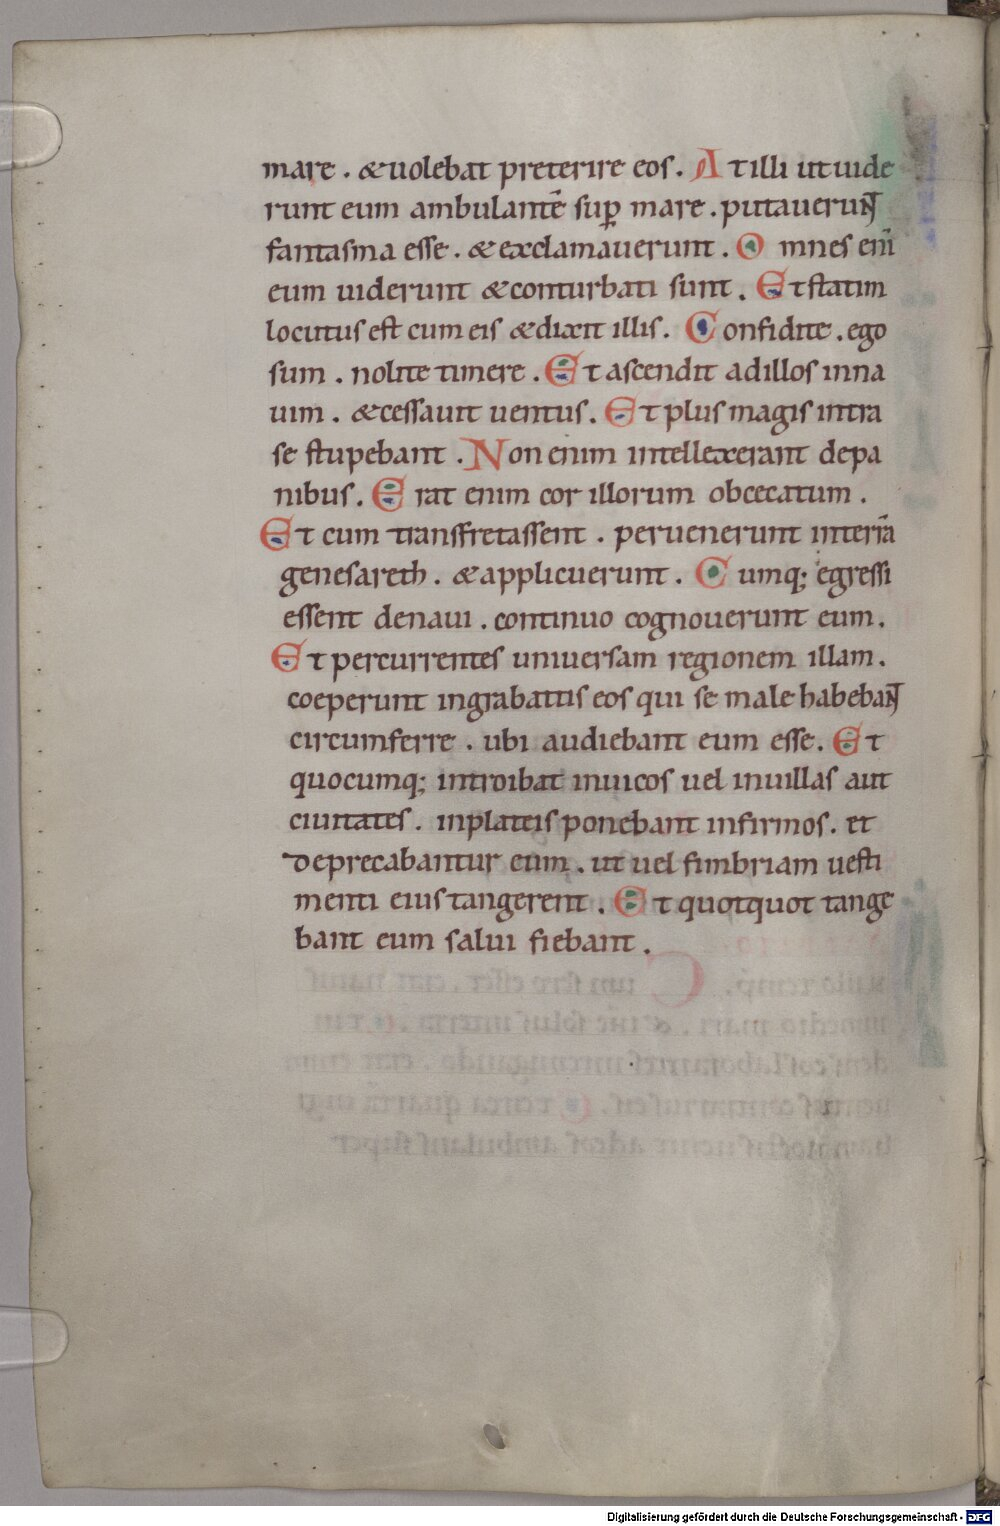 mare . &uolebat preterire eos . At illi ut uide
runt eum ambulantē sup̱ mare . putauerunt
fantasma esse . & exclamauerunt . Omnes eni̅
eum uiderunt & conturbati sunt . Et statim
locutus est cum eis & dixit illis . Confidite . ego
sum . nolite timere . Et ascendit adillos inna
uim . & cessauit uentus . Et plus magis intra
se stupebant . Non enim intellexerant depa
nibus . Erat enim cor illorum obcecatum .
Et cum transfretassent . peruenerunt interrā
genesareth . & applicuerunt . Cumq; egressi
essent denaui . continuo cognouerunt eum .
Et percurrentes uniuersam regionem illam .
coeperunt ingrabattis eos qui se male habebant
circumferre . ubi audiebant eum esse . Et
quocumq; introibat inuicos uel inuillas aut
ciuitates . inplateis ponebant infirmos . et
deprecabantur eum . ut uel fimbriam uesti
menti eius tangerent . Et quotquot tange
bant eum salui fiebant .
Digitalisierung gefördert durch die Deutsche Forschungsgemeinschaft - DFG